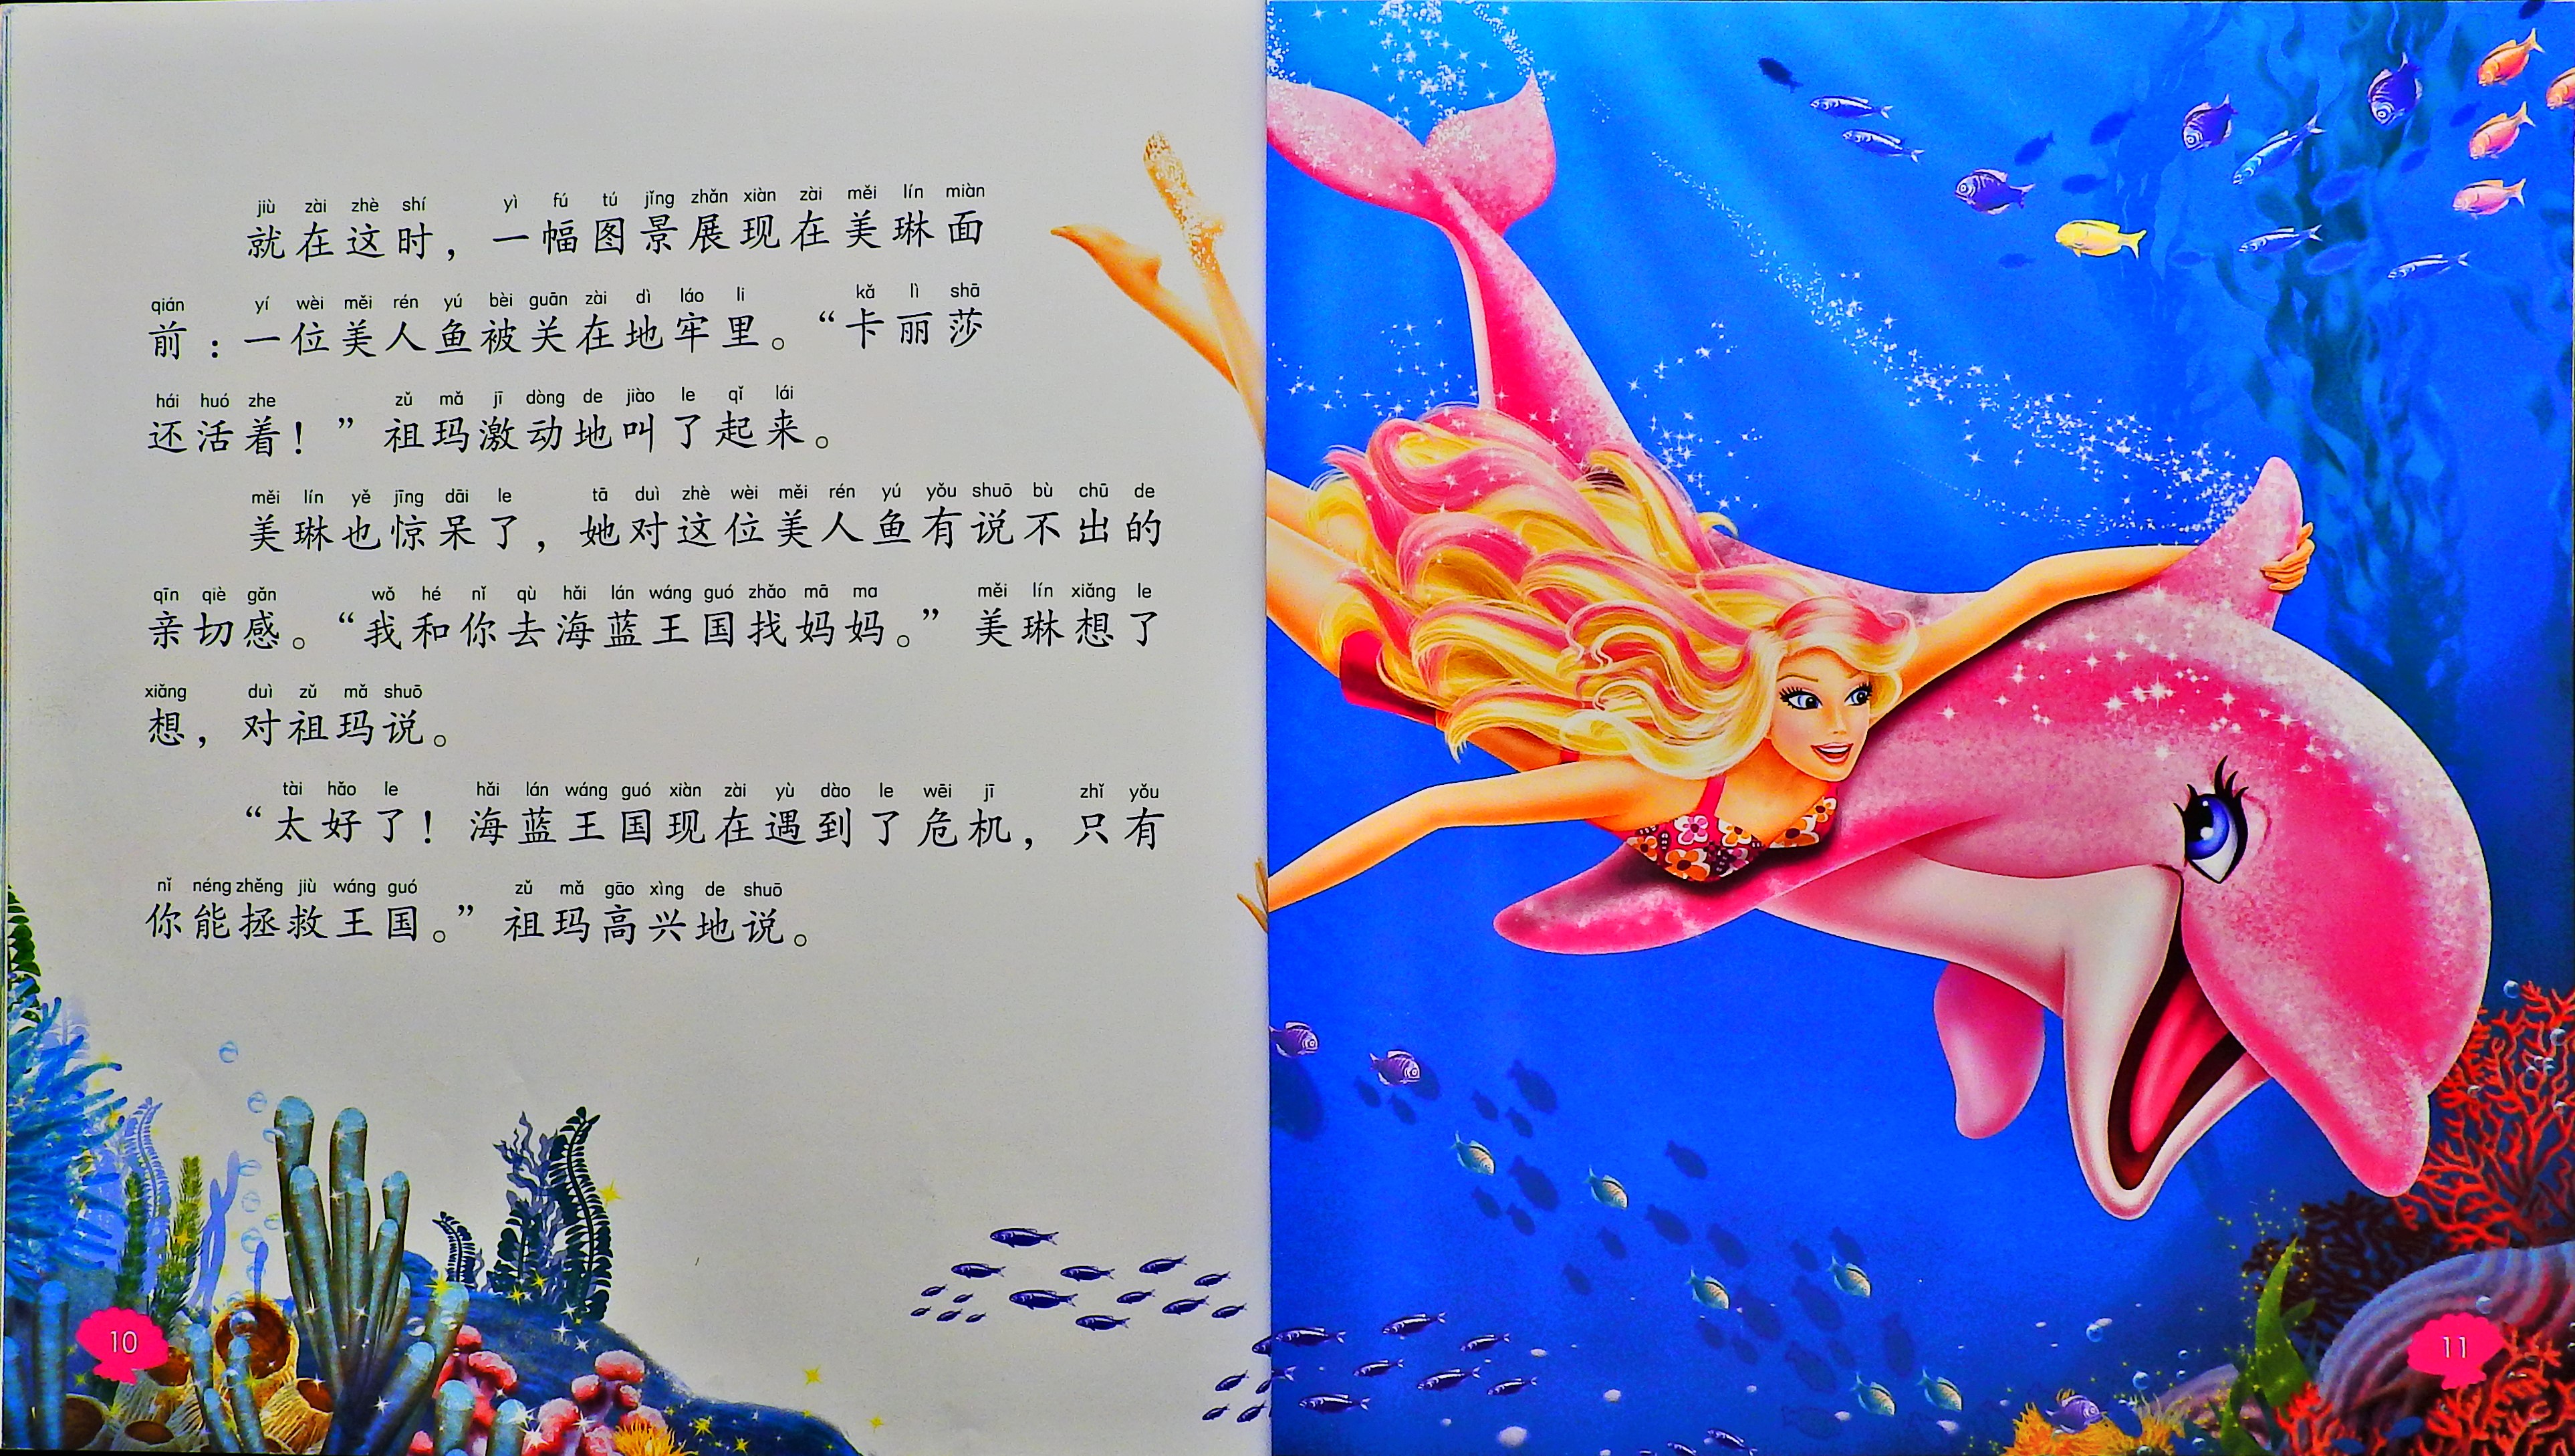 jiù zài zhè shí yì fú tú jǐng zhǎn xiàn zài měi lín miàn
就在这时，一幅图景展现在美琳面
qián yí wèi měi rén yú bèi guān zài dì láo li kǎ lì shā
前：一位美人鱼被关在地牢里。“卡丽莎
hái huó zhe zǔ mǎ jī dòng de jiào le qǐ lái
还活着！”祖玛激动地叫了起来。
měi lín yě jīng dāi le tā duì zhè wèi měi rén yú yǒu shuō bù chū de
美琳也惊呆了，她对这位美人鱼有说不出的
qīn qiè gǎn wǒ hé nǐ qù hǎi lán wáng guó zhǎo mā ma měi lín xiǎng le
亲切感。“我和你去海蓝王国找妈妈。”美琳想了
xiǎng duì zǔ mǎ shuō
想，对祖玛说。
tài hǎo le hǎi lán wáng guó xiàn zài yù dào le wēi jī zhǐ yǒu
“太好了！海蓝王国现在遇到了危机，只有
nǐ néng zhěng jiù wáng guó zǔ mǎ gāo xìng de shuō
你能拯救王国。”祖玛高兴地说。
10
11